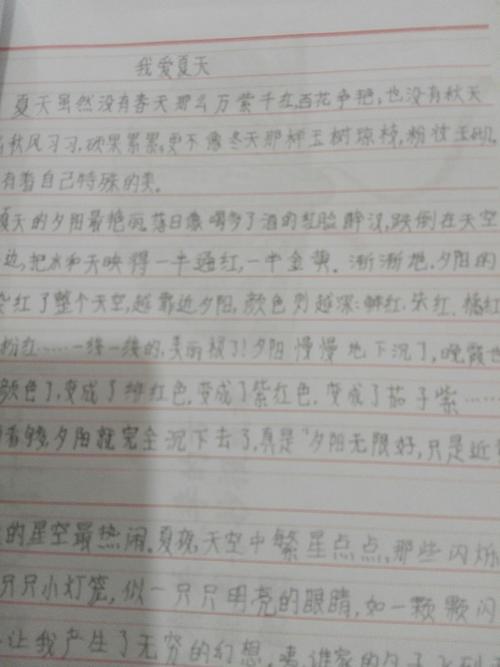 我爱夏天
夏天虽然没有春天那么万紫千红,百花争艳,也没有秋天
秋风习习,硕果累累,更不像冬天那种玉树琼枝,粉妆玉砌,
有着自己特殊的美。
夏天的夕阳最艳丽。落日像喝多了酒的红脸醉汉,跌倒在天空
边,把水和天映得一半通红,一半金黄。渐渐地,夕阳的
红了整个天空,越靠近夕阳,颜色则越深:鲜红、朱红、橘红
粉红……一缕一缕的,美丽极了!夕阳慢慢地下沉了,晚霞也
颜色了,变成了绅红色,变成了紫红色,变成了茄子紫……
看够,夕阳就完全沉下去了,真是“夕阳无限好,只是近
的星空最热闹。夏夜,天空中繁星点点,那些闪烁
只只小灯笼,似一只只明亮的眼睛,如一颗颗闪
让我产生了无穷的幻想,